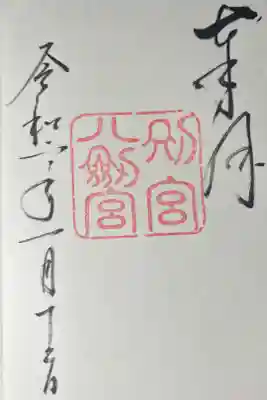 奉拝
別宮
八剣宮
令和 年一月十 日